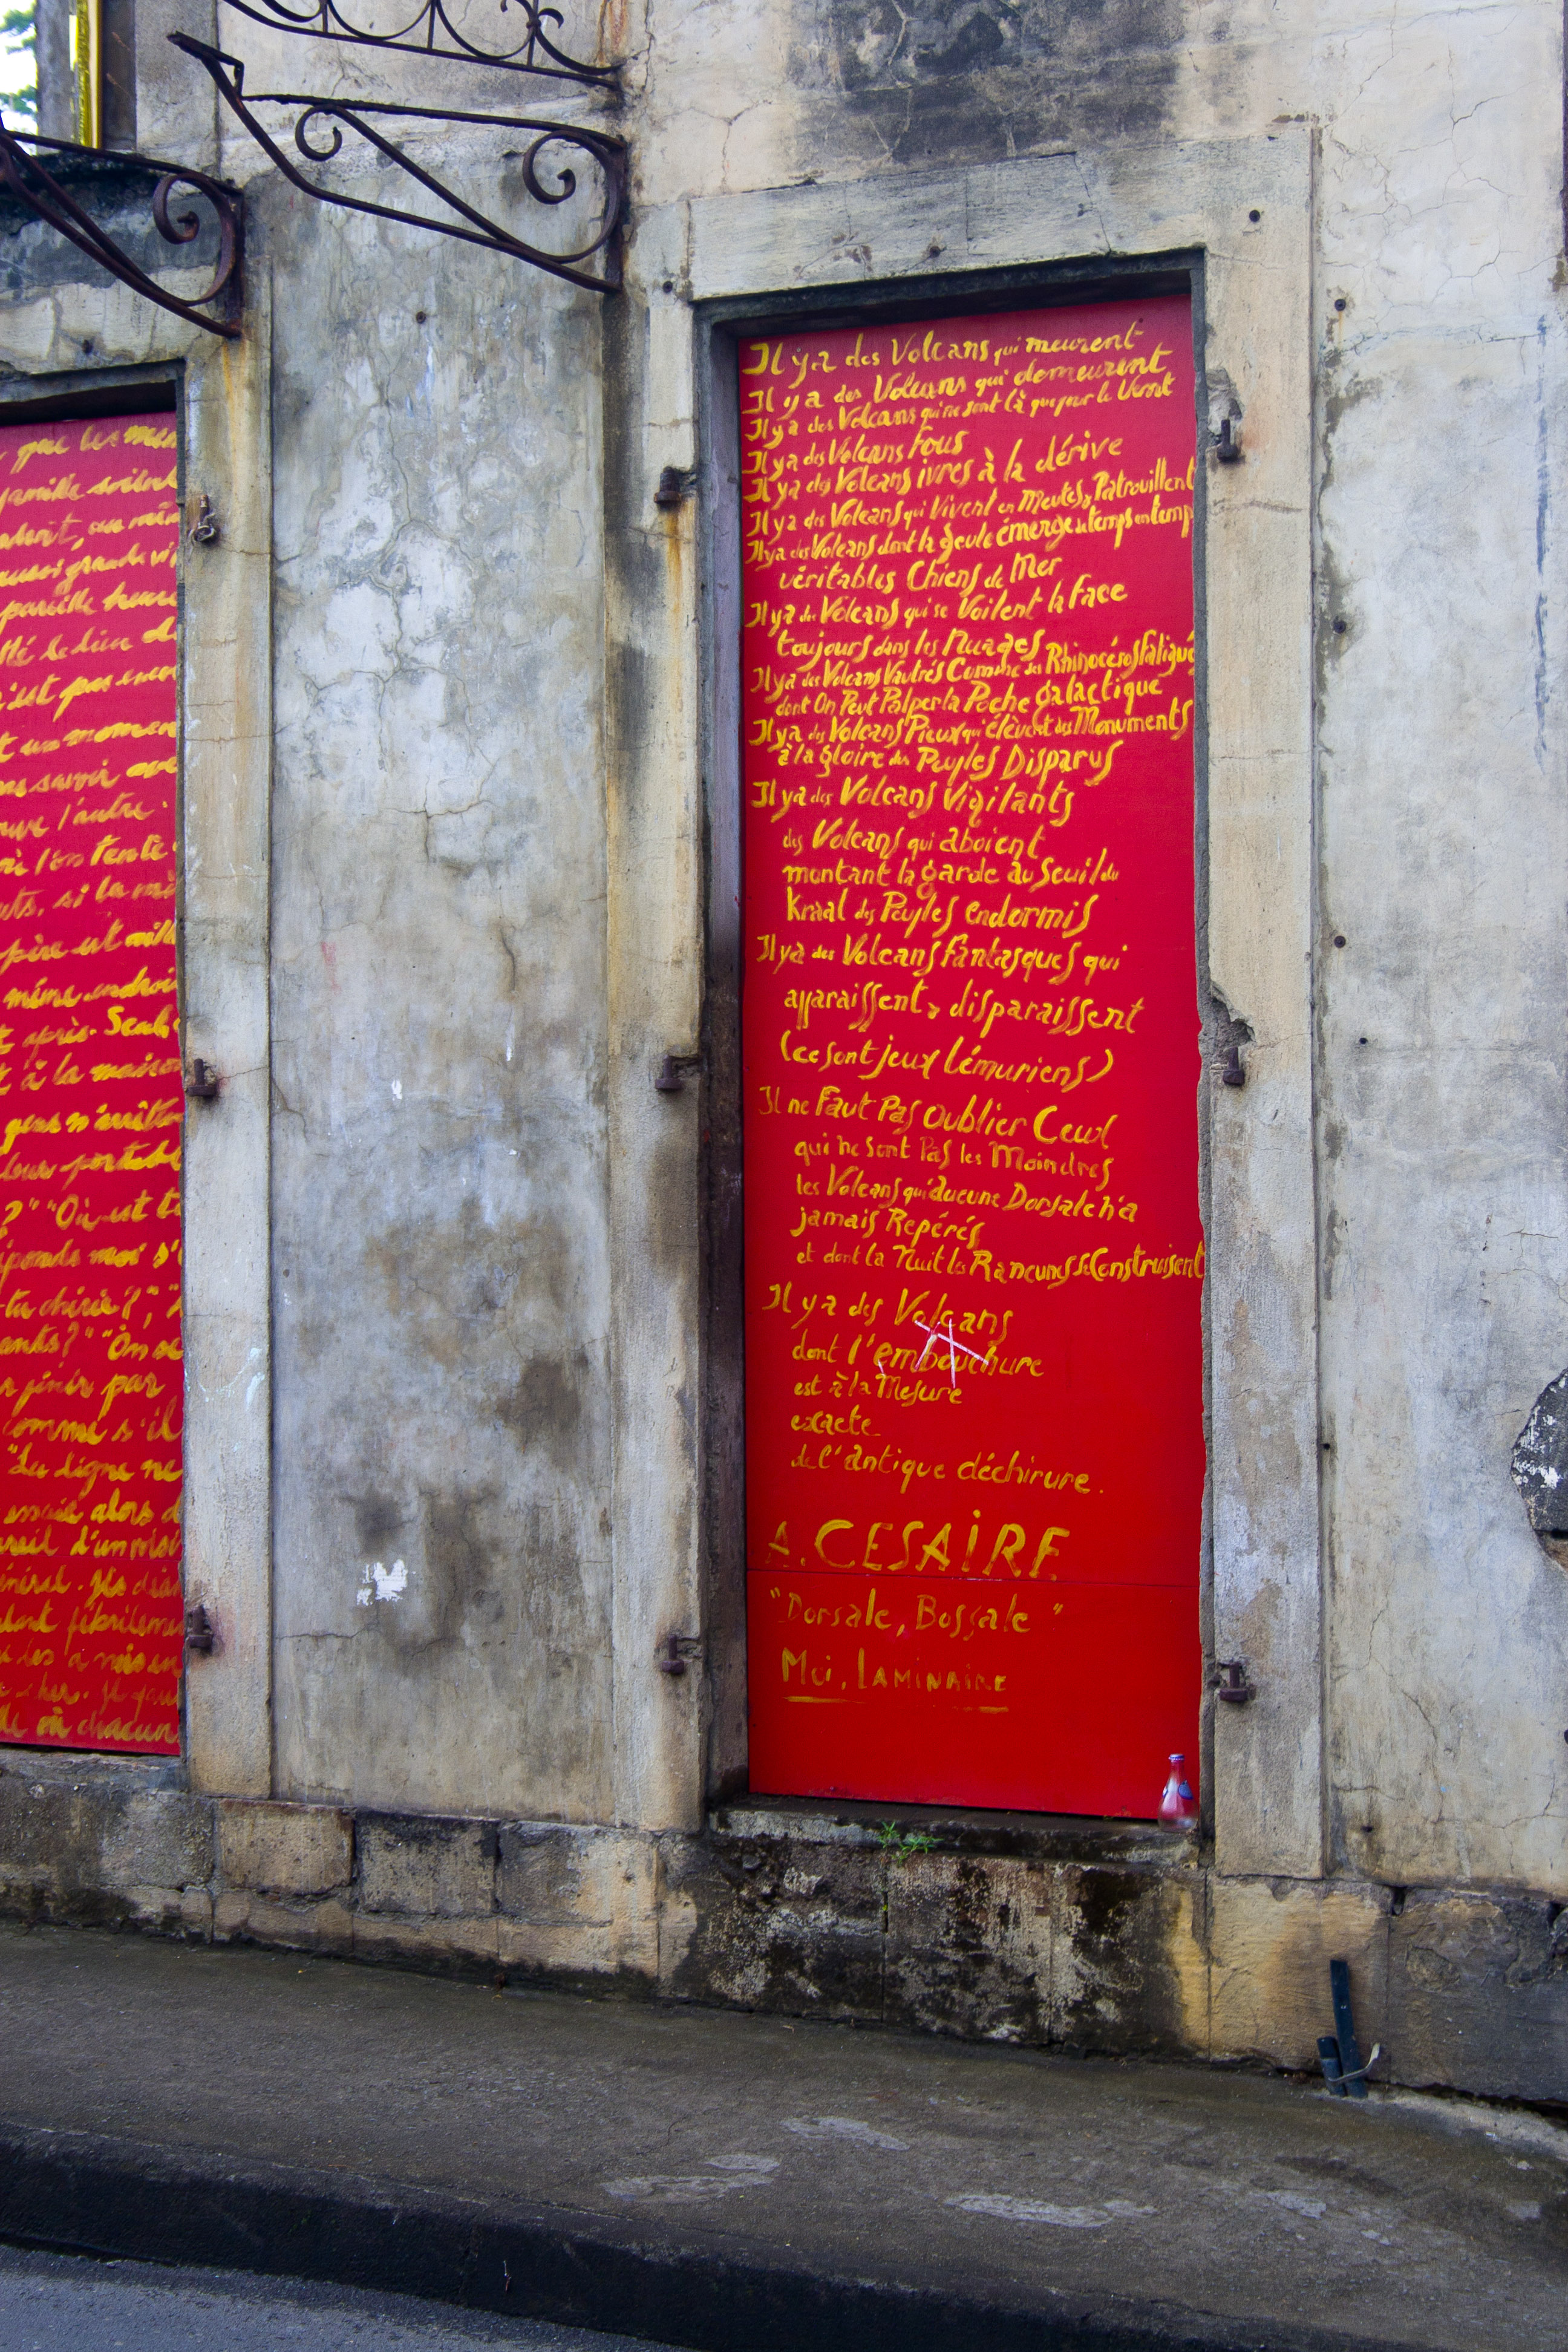 que les
famille soient
aussi grande
pareille heure
n'est pas
un moment
sans savoir
l'autre.
où l'on tente
si la
père est
même endroit
après. Seuls
à la maison
gens
leur portable
?" "Où est
réponds moi s'
-tu chérie?", "
?" "On se
finir par
comme s'il
"La ligne ne
essaie alors
d'un
où chacun
Il y a des Volcans qui meurent
Il y a des Volcans qui demeurent
Il y a des Volcans qui ne sont là que pour le Vent
Il y a des Volcans Fous
Il y a des Volcans ivres à la dérive
Il y a des Volcans qui Vivent en Meutes, Patrouillent
Il y a des Volcans dont la geule émerge de temps en temp
véritables Chiens de Mer
Il y a des Volcans qui se Voilent la Face
toujours dans les Nuages
Il y a des Volcans Vautrés Comme des Rhinocéros fatigués
dont On Peut Palper la Poche galactique
Il y a des Volcans Pieux qui élèvent des Monuments
à la gloire des Peuples Disparus
Il y a des Volcans Vigilants
des Volcans qui aboient
montant la garde au Seuil du
Kraal des Peuples endormis
Il y a des Volcans Fantasques qui
apparaissent, disparaissent
(ce sont jeux lémuriens)
Il ne Faut Pas Oublier Ceux
qui ne sont Pas les Moindres
les Volcans qu'aucune Dorsale n'a
jamais Repérés
et dont la Nuit les Rancunes se Construisent
Il y a des Volcans
dont l'embouchure
est à la Mesure
exacte
de l'antique déchirure.
A. CESAIRE
"Dorsale, Bossale"
Moi, LAMINAIRE